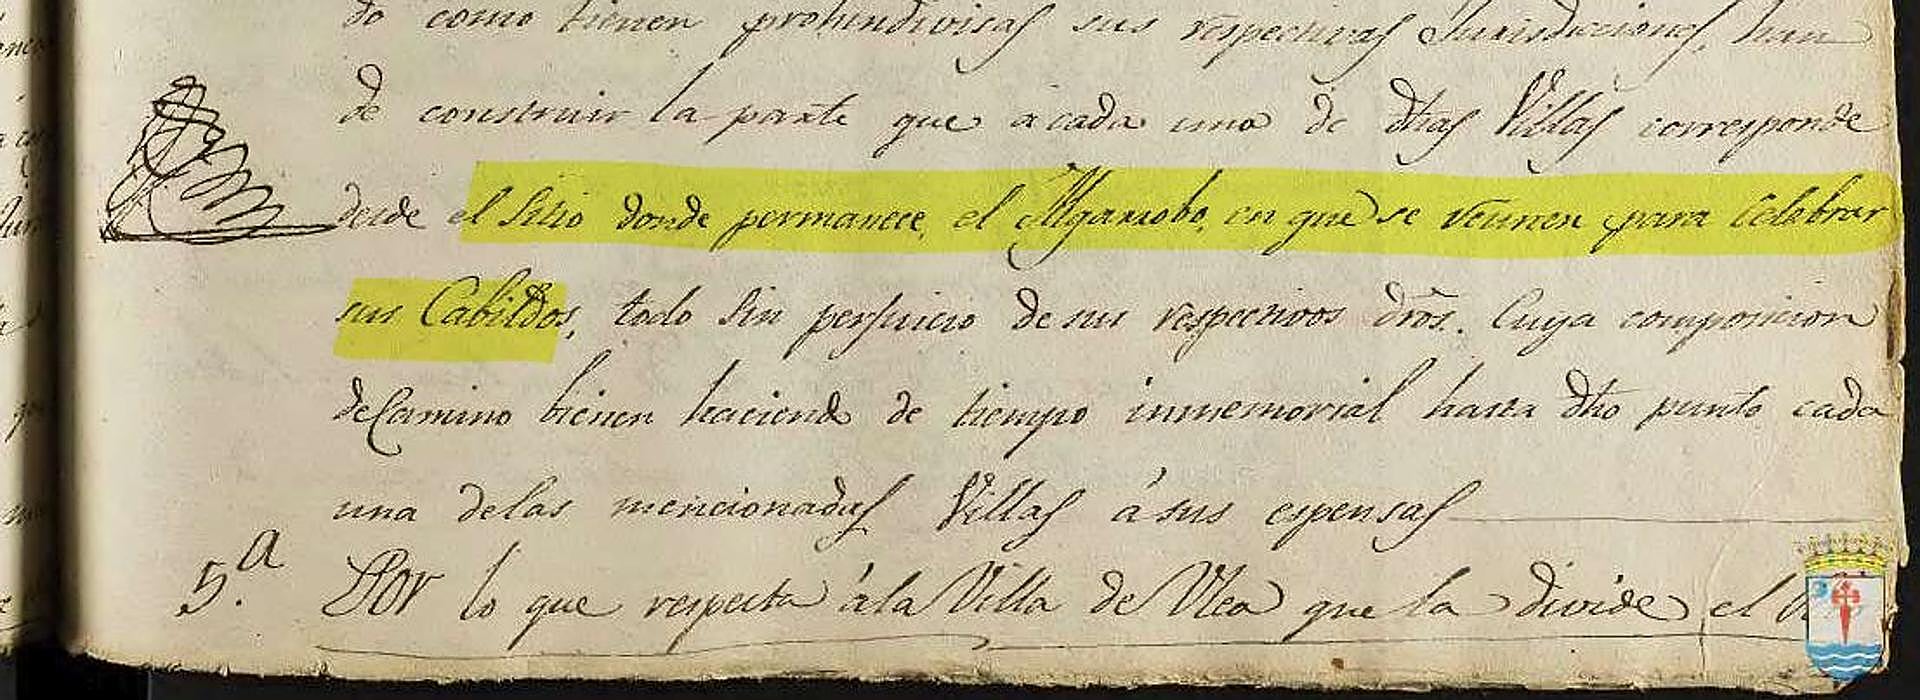 do como tienen prohundivisas sus respectivas Jurisdicciones, han
de construir la parte que á cada una de dhas Villas corresponde
desde el sitio donde permanece, el Algarrobo, en que se reunen para celebrar
sus Cabildos, todo sin perjuicio de sus respectivos dros. Cuya composicion
de Camino bienen haciendo de tiempo inmemorial hasta dho punto cada
una de las mencionadas Villas á sus espensas
5.a Por lo que respecta á la Villa de Ulea que la divide el